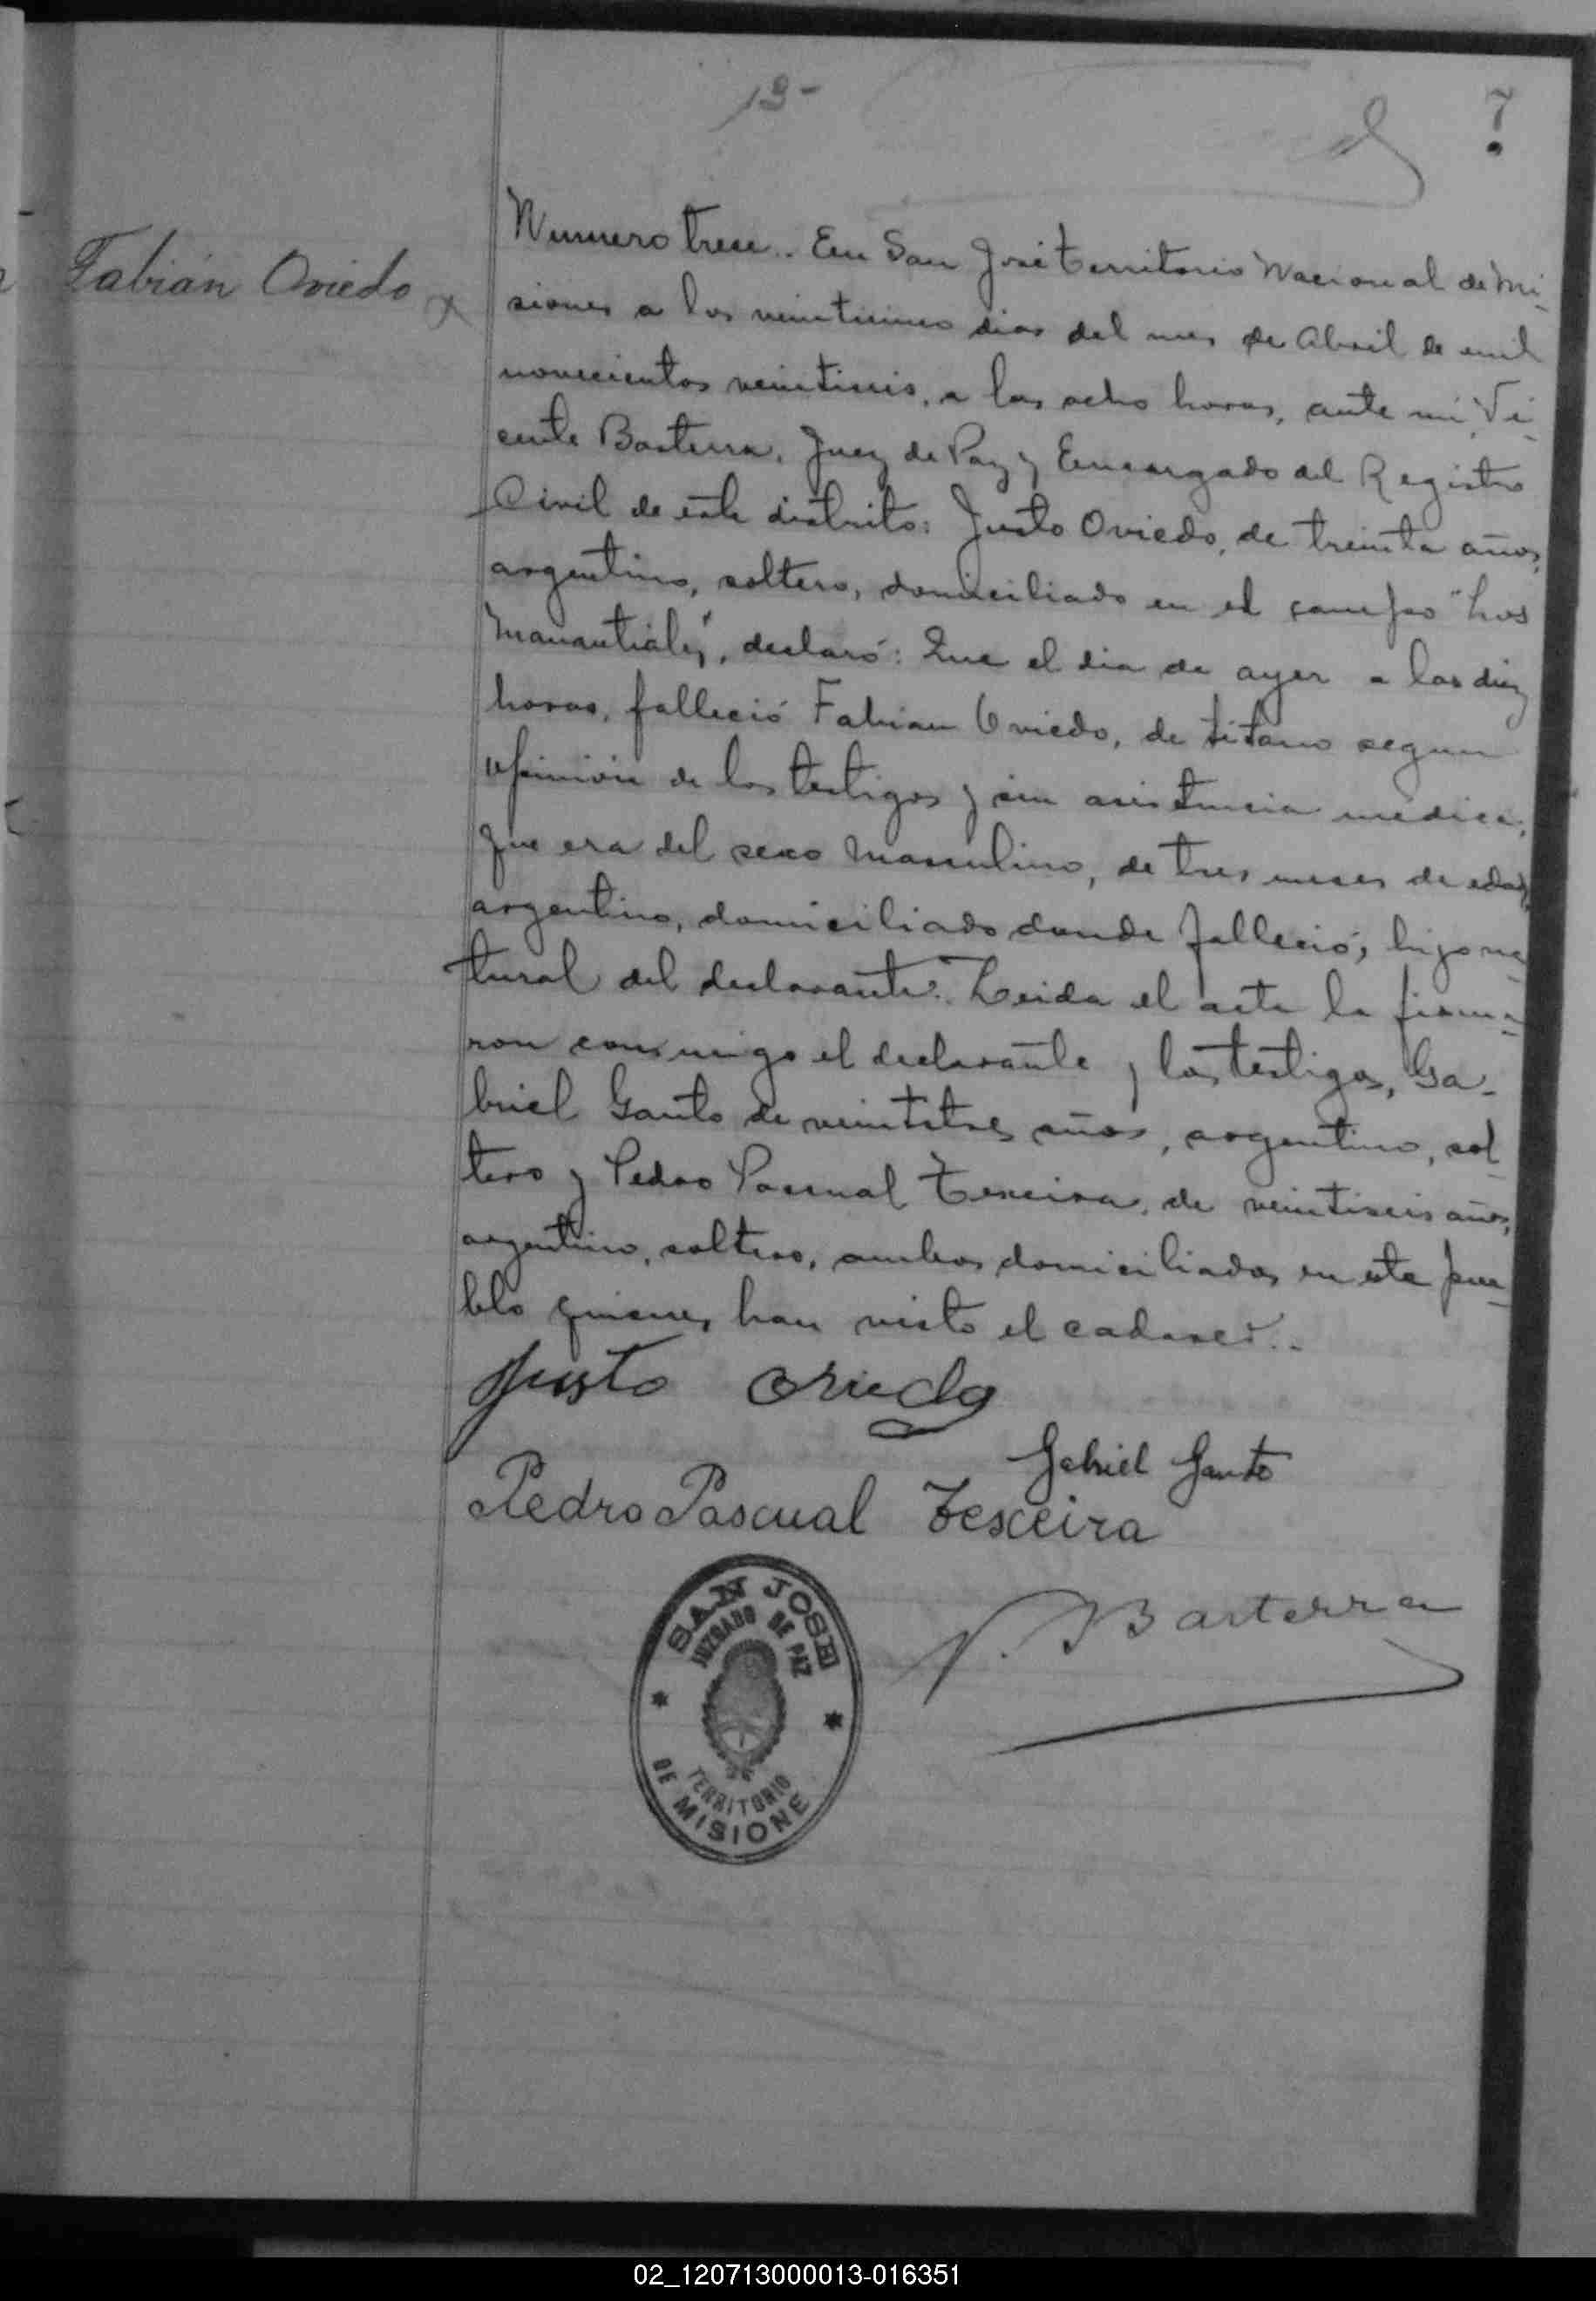 13-
7
Fabián Oviedo
Numero trece.. En San José territorio Nacional de Mi-
siones a los veinticinco dias del mes de Abril de mil
novecientos veintiseis, a las ocho horas, ante mi, Vi-
cente Basterra, Juez de Paz y Encargado del Registro
Civil de este distrito: Justo Oviedo, de treinta años,
argentino, soltero, domiciliado en el campo "Los
Manantiales", declaró: Que el dia de ayer a las diez
horas, falleció Fabian Oviedo, de tétano segun
opinión de los testigos y sin asistencia médica;
que era del sexo masculino, de tres meses de edad,
argentino, domiciliado donde falleció; hijo na-
tural del declarante. Leida el acta la firma-
ron conmigo el declarante y los testigos, Ga-
briel Gauto de veintitres años, argentino, sol-
tero y Pedro Pascual Texeira, de veintiseis años,
argentino, soltero, ambos domiciliados en este pue-
blo quienes han visto el cadaver..
Justo Oviedo
Gabriel Gauto
Pedro Pascual Texeira
V. Basterra
SAN JOSE
JUZGADO DE PAZ
TERRITORIO
DE MISIONE
02_120713000013-016351